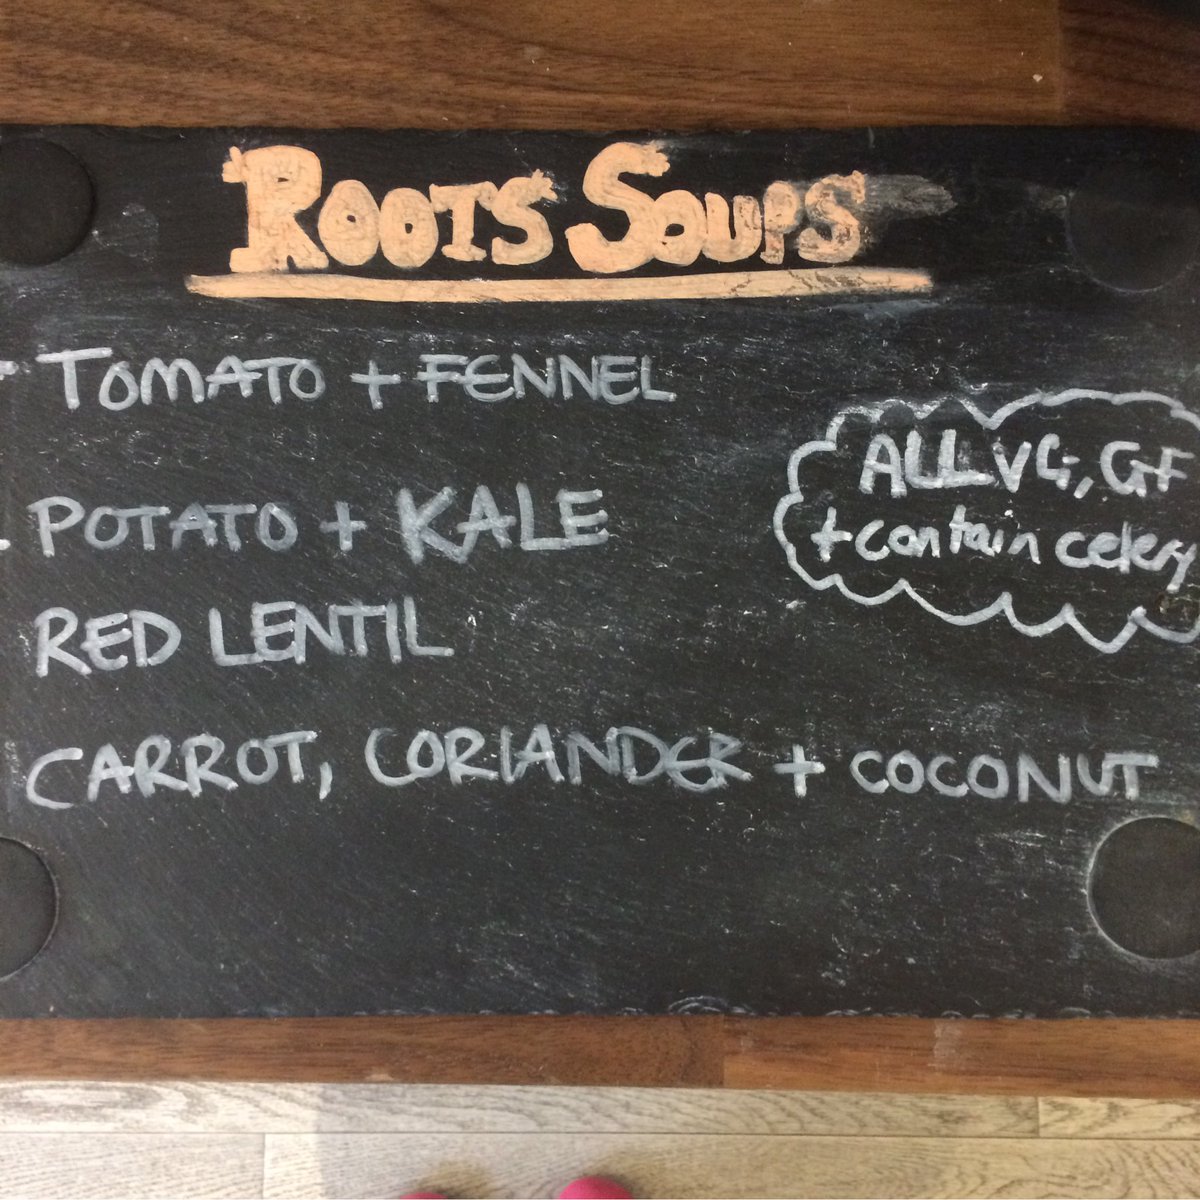 ROOTS SOUPS
TOMATO + FENNEL
ALL VG, GF
+ contain celery
POTATO + KALE
RED LENTIL
CARROT, CORIANDER + COCONUT